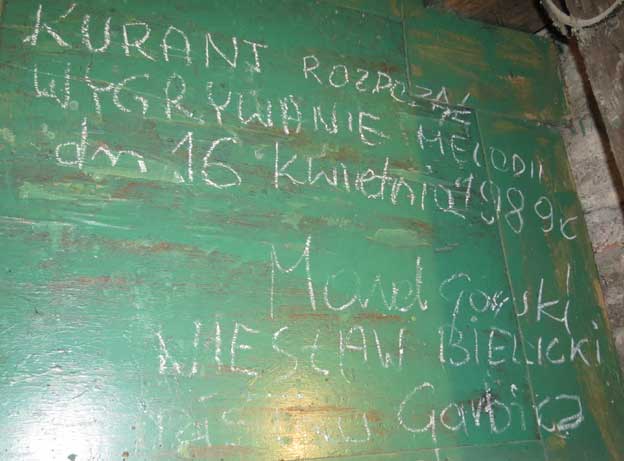 KURANT ROZPCZĄŁ
WYGRYWANIE MELODII
dn 16 kwietnia 1989r
Górski
WIESŁAW BIELICKI